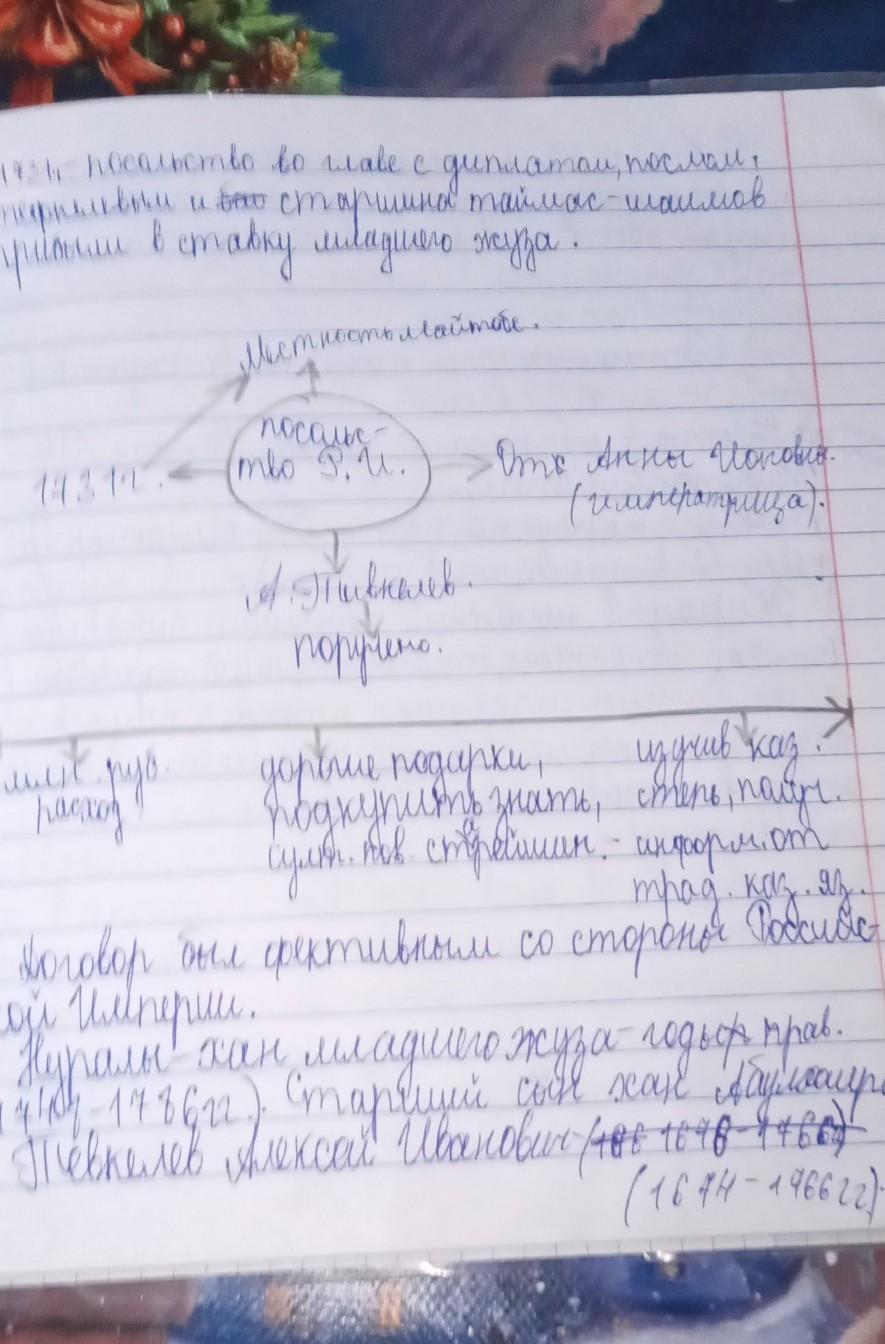 1731г- посальство во главе с диплатом, послом,
и старшина таймас-шаимов
в ставку младшего жуза.
Местность майтобе.
посальс-
тво Р.И.
1731г.
От Анны
(императрица).
А. Тивкелев.
поручено.
млн. руб.
расход
дорогие подарки,
подкупить знать,
султ.
изучив каз.
степь, получ.
информ. от
трад. каз. яз.
Договор был фективным со стороны Российс-
ой Империи.
Нуралы-хан младшего жуза-годы прав.
-1786гг). Старший сын хан Абулхаира
Тевкелев Алексей Иванович
(1674-1766гг).